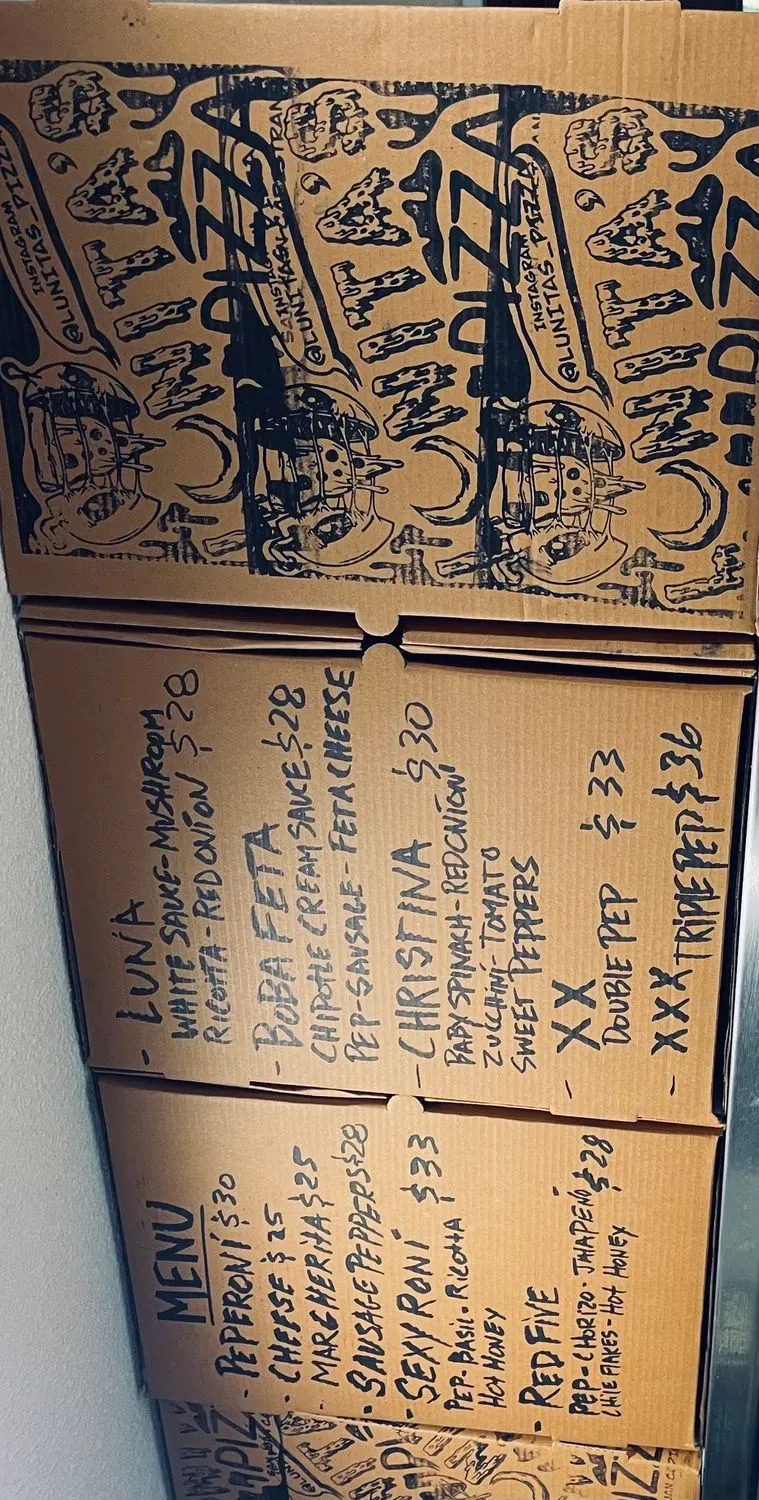 MENU
- PEPERONI $30
- CHEESE $25
- MARGHERITA $25
- SAUSAGE PEPPERS $28
- SEXY RONI $33
PEP - BASIL - RICOTTA
HOT HONEY
- RED FIVE
PEP - CHORIZO - JALAPEÑO $28
CHILE FLAKES - HOT HONEY
- LUNA
WHITE SAUCE - MUSHROOM
RICOTTA - RED ONION $28
- BOBA FETA
CHIPOTLE CREAM SAUCE $28
PEP - SAUSAGE - FETA CHEESE
- CHRISTINA $30
BABY SPINACH - RED ONION
ZUCCHINI - TOMATO
SWEET PEPPERS
- XX
DOUBLE PEP $33
- XXX
TRIPLE PEP $36
PIZZA
INSTAGRAM
@LUNITAS_PIZZA
PIZZA
@LUNITAS
PIZZA
INSTAGRAM
@LUNITAS_PAIZZA
PIZZA